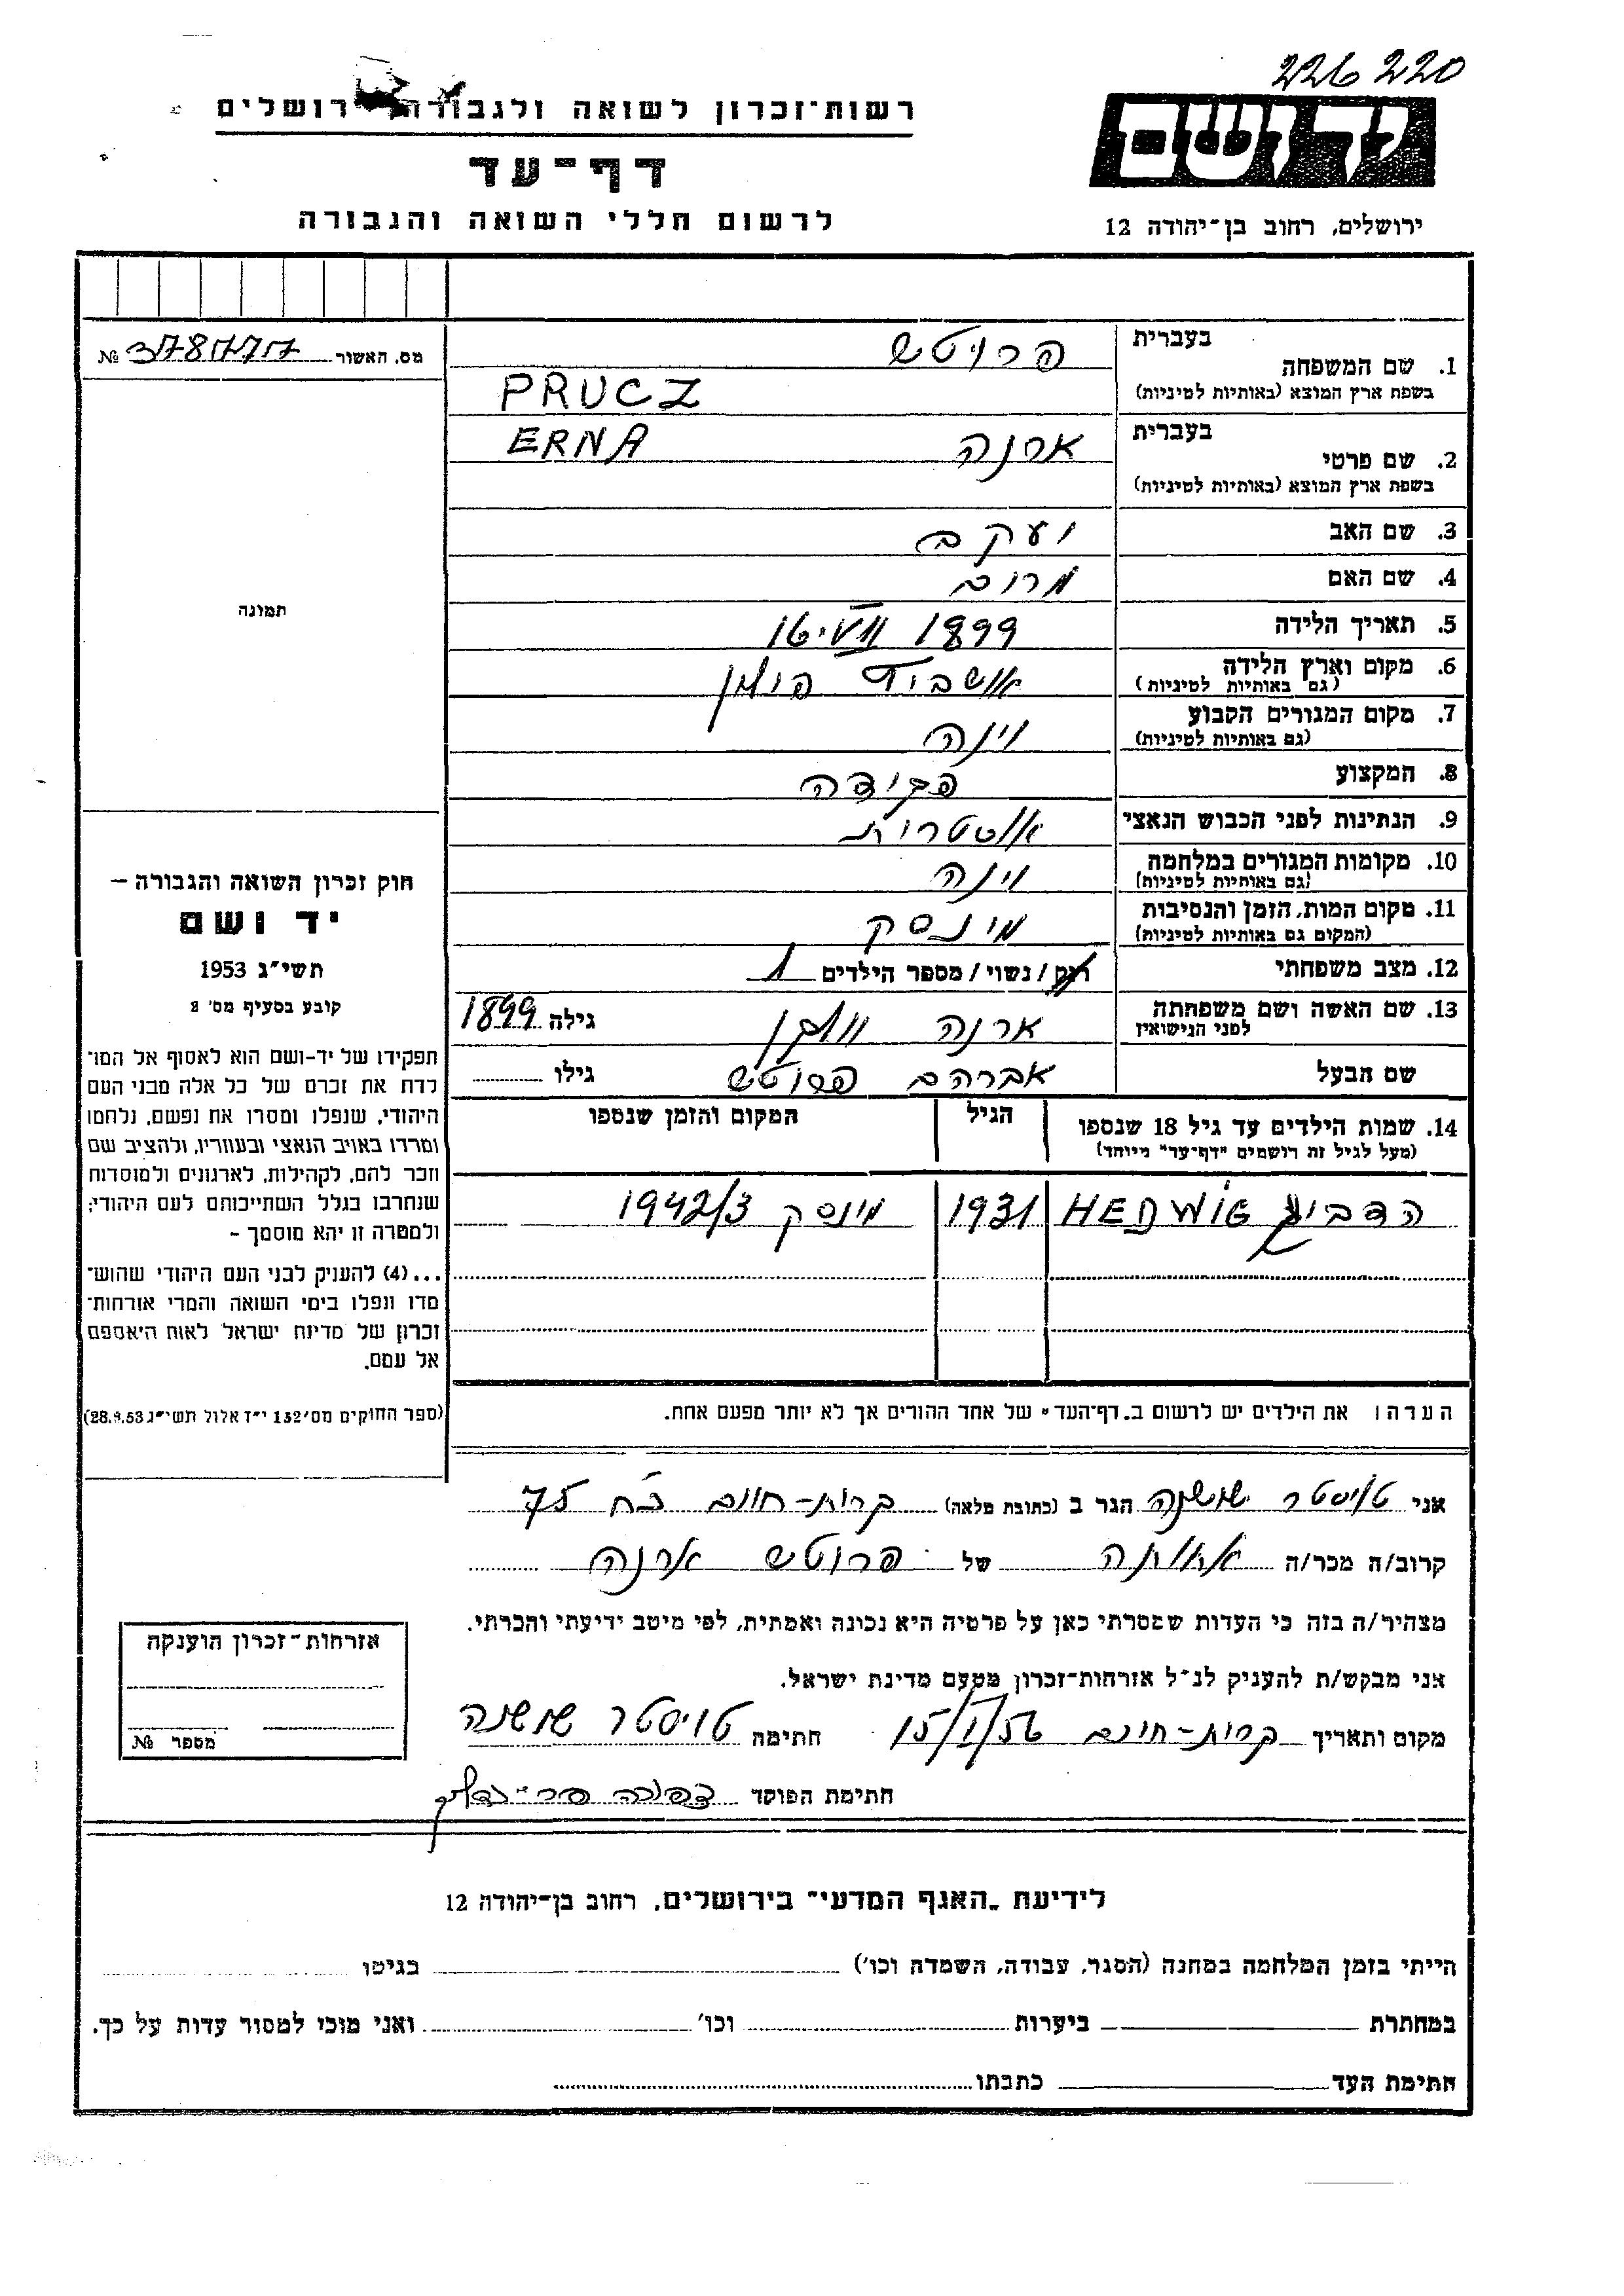 226220
רשות־זכרון לשואה ולגבורה ירושלים
יד ושם
דף־עד
לרשום חללי השואה והגבורה
ירושלים, רחוב בן־יהודה 12
מס. האשור 378777 №
בעברית
1. שם המשפחה פרויטש
בשפת ארץ המוצא (באותיות לטיניות) PRUCZ
בעברית
2. שם פרטי ארנה ERNA
בשפת ארץ המוצא (באותיות לטיניות)
3. שם האב יעקב
4. שם האם
5. תאריך הלידה 16.VII 1899
6. מקום וארץ הלידה פולין
(גם באותיות לטיניות)
7. מקום המגורים הקבוע וינה
(גם באותיות לטיניות)
8. המקצוע פקידה
9. הנתינות לפני הכבוש הנאצי אוסטרית
10. מקומות המגורים במלחמה וינה
(גם באותיות לטיניות)
11. מקום המות, הזמן והנסיבות מינסק
(המקום גם באותיות לטיניות)
12. מצב משפחתי רווק / נשוי / מספר הילדים 1
13. שם האשה ושם משפחתה ארנה גילה 1899
לפני הנישואין
שם הבעל אברהם פרוטש גילו
14. שמות הילדים עד גיל 18 שנספו הגיל המקום והזמן שנספו
(מעל לגיל זה רושמים "דף־עד" מיוחד)
הדביג HEDWIG 1931 מינסק 1942/3
הערה: את הילדים יש לרשום ב„דף־העד" של אחד ההורים אך לא יותר מפעם אחת.
תמונה
חוק זכרון השואה והגבורה –
יד ושם
תשי"ג 1953
קובע בסעיף מס' 2
תפקידו של יד-ושם הוא לאסוף אל המו־
לדת את זכרם של כל אלה מבני העם
היהודי, שנפלו ומסרו את נפשם, נלחמו
ומרדו באויב הנאצי ובעוזריו, ולהציב שם
וזכר להם, לקהילות, לארגונים ולמוסדות
שנחרבו בגלל השתייכותם לעם היהודי;
ולמטרה זו יהא מוסמך –
...(4) להעניק לבני העם היהודי שהוש־
מדו ונפלו בימי השואה והמרי אזרחות־
זכרון של מדינת ישראל לאות היאספם
אל עמם.
(ספר החוקים מס' 132 י"ז אלול תשי"ג 28.8.53)
אני טויסטר שושנה הגר ב (כתובת מלאה) קרית-חיים 75
קרוב/ה מכר/ה אחותה של פרוטש ארנה
מצהיר/ה בזה כי העדות שמסרתי כאן על פרטיה היא נכונה ואמתית, לפי מיטב ידיעתי והכרתי.
אני מבקש/ת להעניק לנ"ל אזרחות־זכרון מטעם מדינת ישראל.
מקום ותאריך קרית-חיים 15/1/56 חתימה טויסטר שושנה
חתימת הפוקד
אזרחות־זכרון הוענקה
מספר №
לידיעת „האגף המדעי" בירושלים, רחוב בן־יהודה 12
הייתי בזמן המלחמה במחנה (הסגר, עבודה, השמדה וכו') בגיטו
במחתרת ביערות וכו' ואני מוכן למסור עדות על כך.
חתימת העד כתבתו